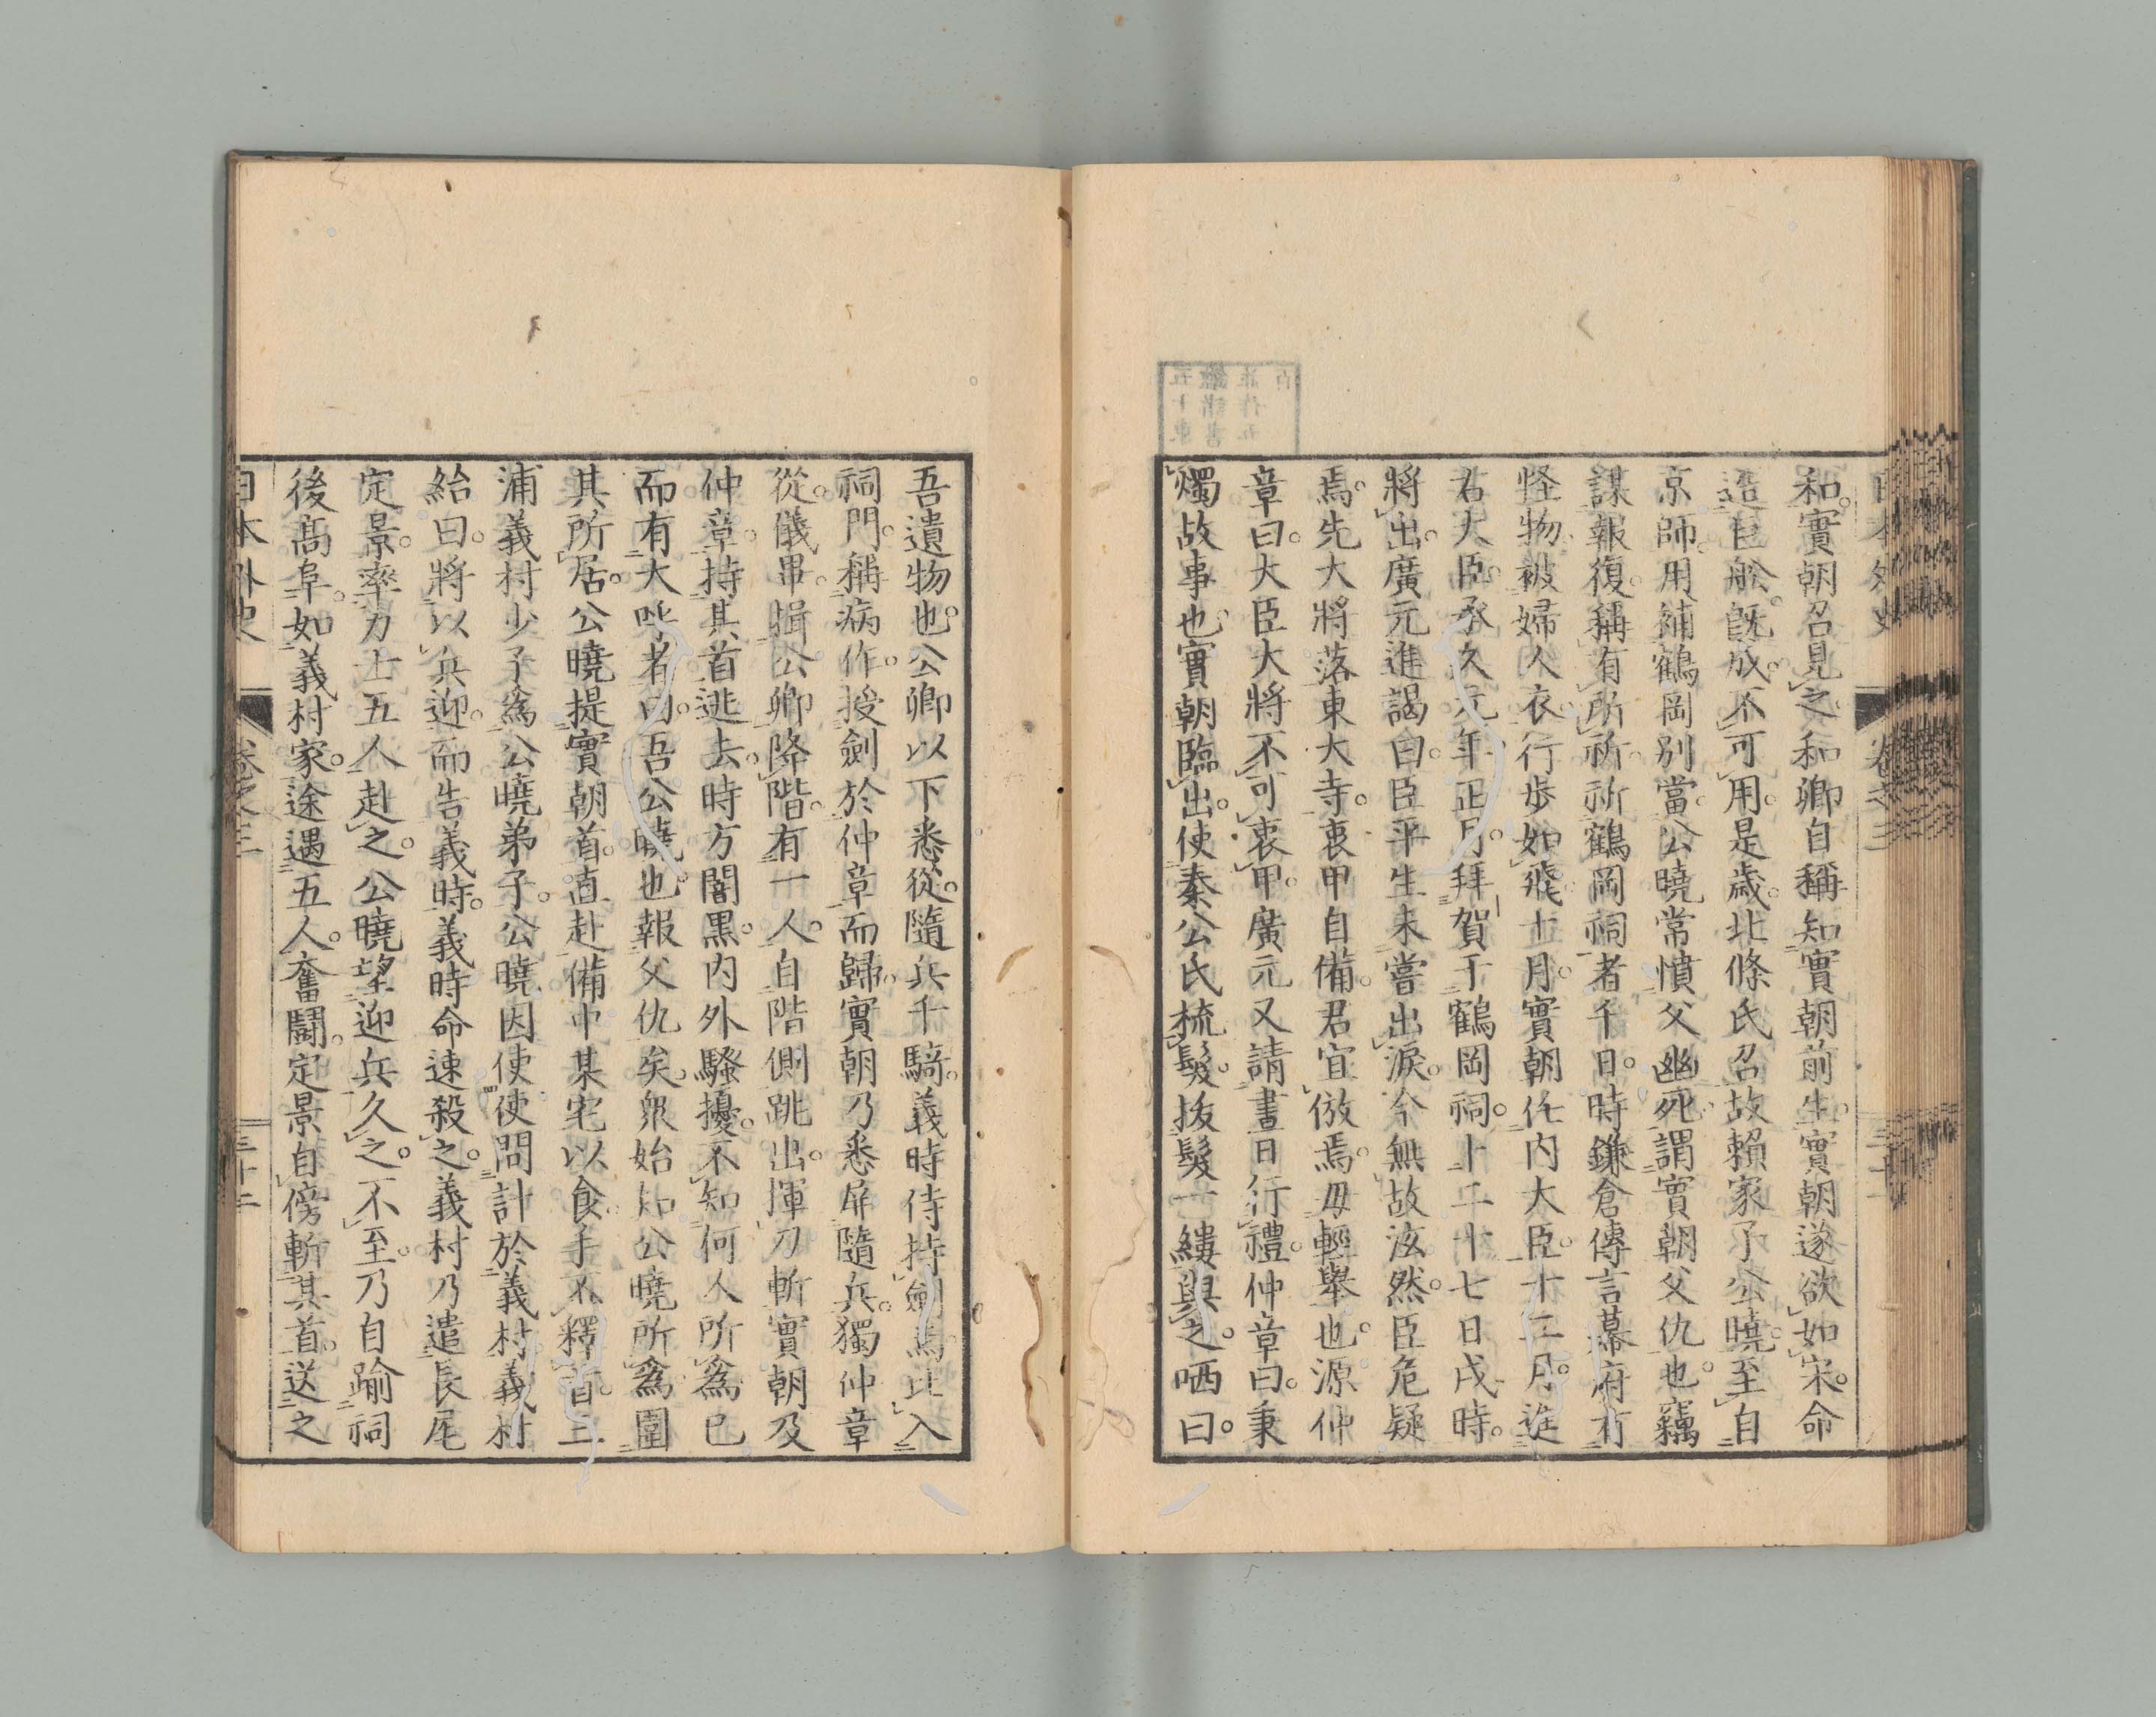 和。實朝召見之。和卿自稱知實朝前生。實朝遂欲如宋。命
造巨舩。既成。不可用。是歳。北條氏召故賴家子公曉。至自
京師。用補鶴岡別當。公曉常憤父幽死。謂實朝父仇也。竊
謀報復。稱有所祈。祈鶴岡祠者千日。時鎌倉傳言幕府有
怪物。被婦人衣。行歩如飛。十月。實朝任内大臣。十二月。進
右大臣。承久元年正月。拜賀于鶴岡祠。十二十七日戌時。
將出。廣元進謁曰。臣平生未嘗出淚。今無故泫然。臣危疑
焉。先大將落東大寺。衷甲自備。君宜倣焉。毋輕舉也。源仲
章曰。大臣大將不可衷甲。廣元又請晝日行禮。仲章曰。秉
燭故事也。實朝臨出。使秦公氏梳髮。拔髮一縷與之。哂曰。
日本外史 卷之三
吾遺物也。公卿以下悉從。隨兵千騎。義時侍持劍焉。比入
祠門。稱病作。授劍於仲章而歸。實朝乃悉屏隨兵。獨仲章
從。儀畢。揖公卿降階。有一人。自階側跳出。揮刀斬實朝及
仲章。持其首逃去。時方闇黒。内外騷擾。不知何人所爲。已
而有大呼者。曰。吾公曉也。報父仇矣。衆始知公曉所爲。圍
其所居。公曉提實朝首。直赴備中某宅以食。手不釋首。三
浦義村少子爲公曉弟子。公曉因使使問計於義村。義村
紿曰。將以兵迎。而告義時。義時命速殺之。義村乃遣長尾
定景。率力士五人赴之。公曉望迎兵久之。不至。乃自踰祠
後髙阜。如義村家。途遇五人。奮鬪。定景自傍斬其首。送之
日本外史 卷之三 三十二